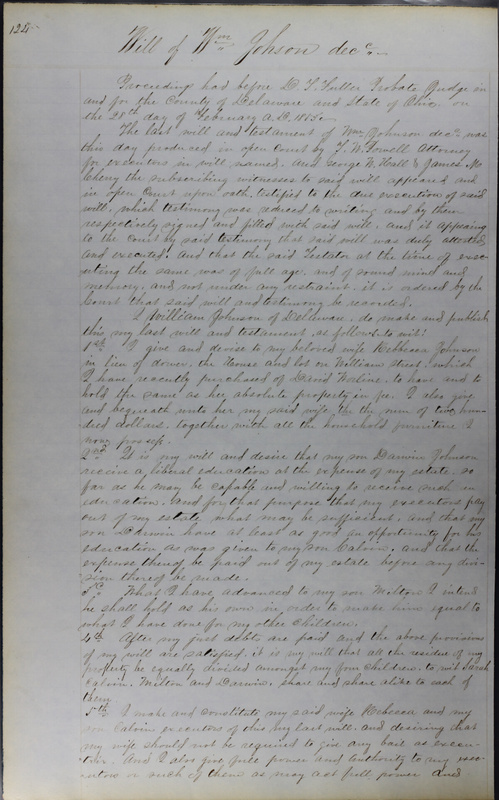 122
Will of Wm Johson decd
Proceedings had before D. T. Fuller Probate Judge in
and for the County of Delaware and State of Ohio, on
the 28th day of February A.D. 185
The last will and testament of Wm Johnson decd was
this day produced in open Court by T. W. Powell Attorney
for executors in will named. And George W. Hall & James Mc
Cheny the subscribing witnesses to said will appeared and
in open Court upon oath, testified to the due execution of said
will, which testimony was reduced to writing and by them
respectively signed and filled with said will, and it appearing
to the Court by said testimony that said will was duly attested
and executed. And that the said Testator at the time of exec-
uting the same was of full age, and of sound mind and
memory, and not under any restraint, it is ordered by the
Court that said will and testimony be recorded.
I William Johnson of Delaware, do make and publish
this my last will and testament, as follows. to wit:
1st I give and devise to my beloved wife Rebbecca Johnson
in lieu of dower, the House and lot on William street, which
I have recently purchased of David to have and to
hold the same as her absolute property in fee. I also give
and bequeath unto her my said wife, the the sum of two hun-
dred dollars, together with all the household furniture I
now possess.
2nd It is my will and desire that my son Darwin Johnson
receive a liberal education at the expense of my estate, so
far as he may be capable and willing to receive such an
education. And for that purpose that my executors pay
out of my estate what may be sufficient, and that my
son Darwin have at least as good an opportunity for his
education as was given to my son Calvin, and that the
expense thereof be paid out of my estate before any divi-
sion thereof be made.
3d What I have advanced to my son Milton I intend
he shall hold as his own in order to make him equal to
what I have done for my other Children.
4th After my just debts are paid and the above provisions
of my will are satisfied, it is my will that all the residue of my
property be equally divided amongst my four children, to wit Sarah
Calvin, Milton and Darwin, share and share alike to each of
them.
5th I make and constitute my said wife Rebecca and my
son Calvin executors of this my last will, and desiring that
my wife should not be required to give any bail as execu-
trix. And I also give full power and authority to my exec-
utors or such of them as may act full power and